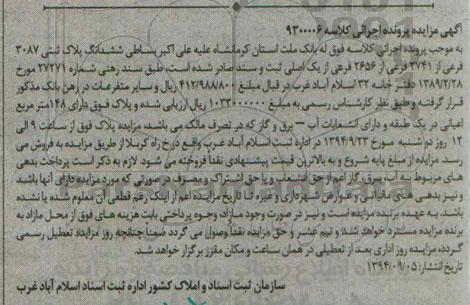 آگهی مزایده پرونده اجرائی کلاسه ۹۳۰۰۰۰۶
به موجب پرونده اجرائی کلاسه فوق له بانک ملت استان کرمانشاه علیه علی اکبر بساطی ششدانگ پلاک ثبتی ۳۰۸۷
فرعی از ۳۷۴۱ فرعی از ۲۶۵۶ فرعی از یک اصلی ثبت و سند صادر شده است، طبق سند رهنی شماره ۲۷۲۷۱ مورخ
۱۳۸۹/۲/۲۸ دفتر خانه ۳۲ اسلام آباد غرب در قبال مبلغ ۴۱۲/۹۸۸۸۰۰ ریال و سایر متفرعات در رهن بانک مذکور
قرار گرفته و طبق نظر کارشناس رسمی به مبلغ ۱۰۳۳۰۰۰۰۰۰ ریال ارزیابی شده و پلاک فوق دارای ۱۴۸ متر مربع
اعیانی در یک طبقه و دارای انشعابات آب – برق و گاز که در تصرف مالک می باشد، مزایده پلاک فوق از ساعت ۹ الی
۱۲ روز دوشنبه مورخ ۱۳۹۴/۹/۲۳ در اداره ثبت اسلام آباد غرب واقع در خ راه کربلا از طریق مزایده به فروش می
رسد. مزایده از مبلغ پایه شروع و به بالاترین قیمت پیشنهادی نقداً فروخته می شود. لازم به ذکر است پرداخت بدهی
های مربوط به آب، برق، گاز اعم از حق انشعاب و یا حق اشتراک و مصرف در صورتی که مورد مزایده دارای آنها باشد
و نیز بدهی های مالیاتی و عوارض شهرداری و غیره تا تاریخ مزایده اعم از اینکه رقم قطعی آن معلوم شده یا نشده
باشد به عهده برنده مزایده است و نیز در صورت وجود مازاد، وجوه پرداختی بابت هزینه های فوق از محل مازاد به
برنده مزایده مسترد خواهد شد و نیم عشر و حق مزایده نقداً وصول می گردد ضمناً چنانچه روز مزایده تعطیل رسمی
گردد، مزایده روز اداری بعد از تعطیلی در همان ساعت و مکان مقرر برگزار خواهد شد.
تاریخ انتشار: ۱۳۹۴/۰۹/۰۵
سازمان ثبت اسناد و املاک کشور اداره ثبت اسناد اسلام آباد غرب